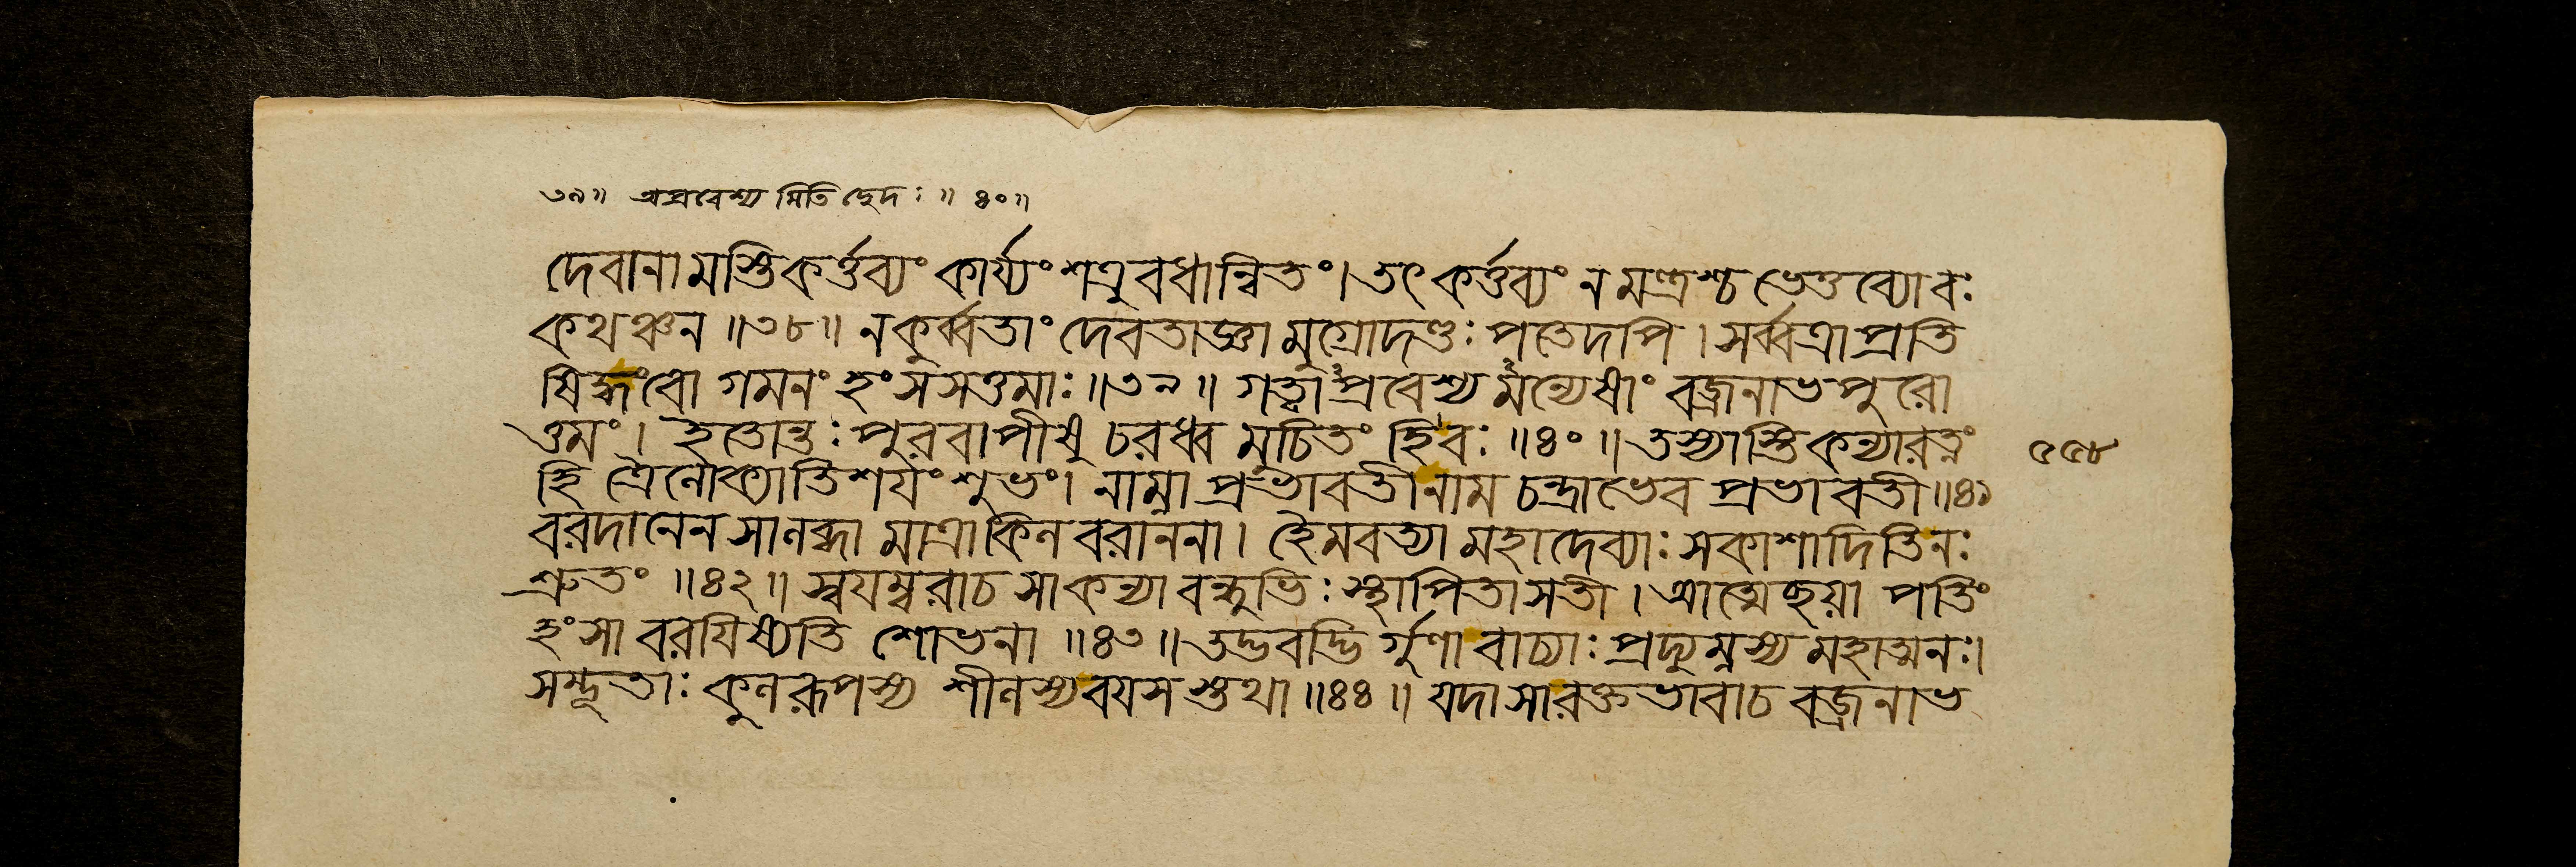 ৩৯॥ অপ্রবেশ্য মিতি ছেদঃ ॥ ৪০॥
দেবানামস্তিকর্ত্তব্যং কার্য্যং শত্রুবধান্বিতং। তৎ কর্ত্তব্যং ন মন্ত্রশ্চ ভেত্তব্যোবঃ
কথঞ্চন ॥৩৮॥ নকুর্ব্বতাং দেবতাজ্ঞামুগ্রোদণ্ডঃ পতেদপি । সর্ব্বত্রাপ্রতি
ষিদ্ধংবো গমনং হংসসত্তমাঃ ॥৩৯॥ গত্বাপ্রবেশ্যমন্যেষাং বজ্রনাভপুরো
ত্তমং। ইতোন্তঃপুরবাপীষু চরধ্বমুচিতং হিবঃ ॥৪০॥ তস্যাস্তিকন্যারত্নং
হি ত্রৈলোক্যাতিশযং শুভং। নাম্না প্রভাবতীনাম চন্দ্রাভেব প্রভাবতী ॥৪১
বরদানেন সালব্ধা মাত্রাকিল বরাননা । হৈমবত্যা মহাদেব্যাঃ সকাশাদিতিনঃ
শ্রুতং ॥৪২॥ স্বযম্বরাচ সাকন্যা বন্ধুভিঃ স্থাপিতাসতী । আত্মেছয়া পতিং
হংসা বরযিষ্যতি শোভনা ॥৪৩॥ তদ্ভবদ্ভির্গুণাবাচ্যাঃ প্রদ্যুম্নস্য মহাত্মনঃ।
সম্ভূতাঃ কুলরূপস্য শীলস্যবযসস্তথা ॥৪৪॥ যদাসারক্তভাবাচ বজ্রনাভ
৫৫৮